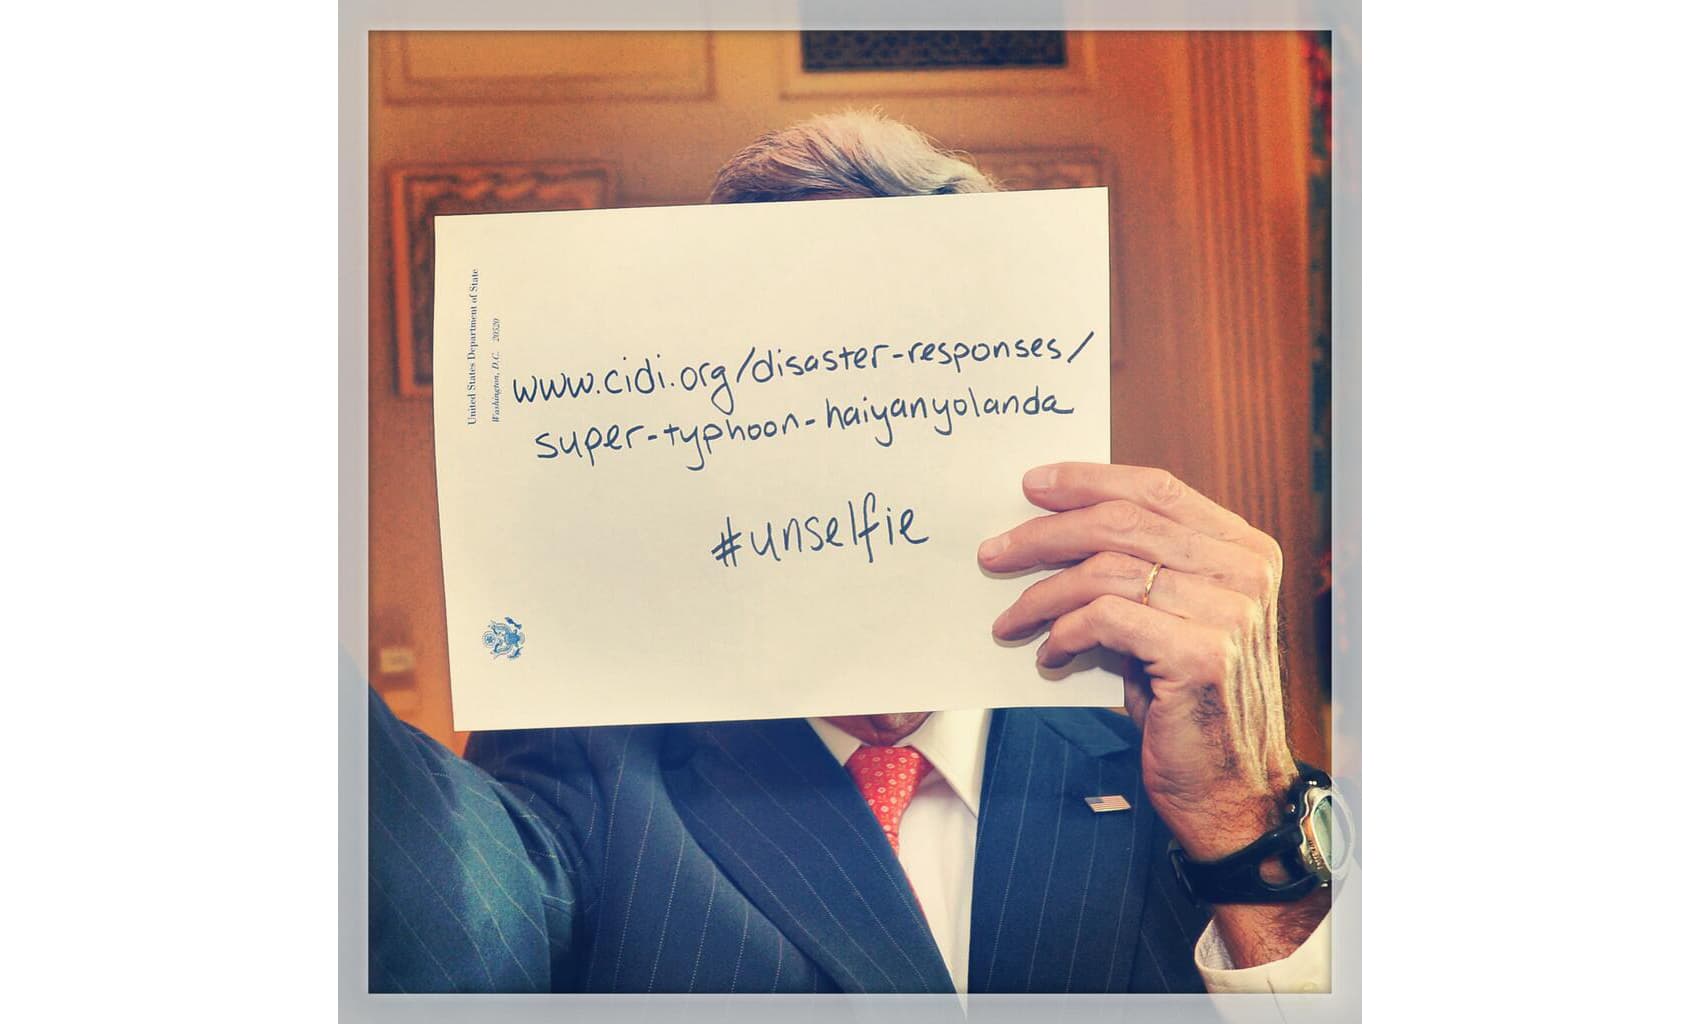 United States Department of State
Washington, D.C. 20520
www.cidi.org/disaster-responses/
super-typhoon-haiyanyolanda
#unselfie